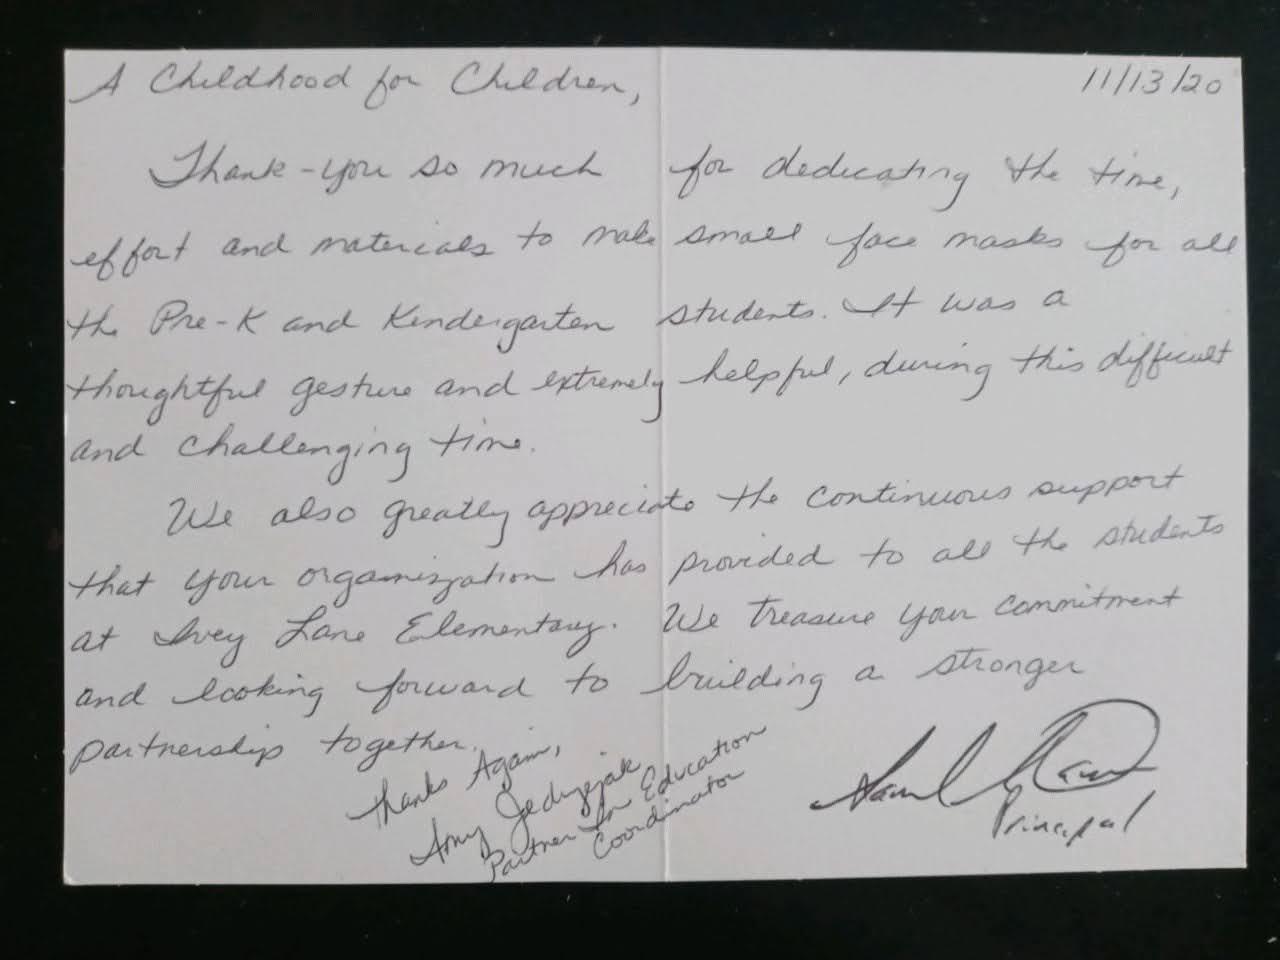 A Childhood for Children,
11/13/20
Thank-you so much for dedicating the time,
effort and materials to make small face masks for all
the Pre-K and Kindergarten students. It was a
thoughtful gesture and extremely helpful, during this difficult
and challenging time.
We also greatly appreciate the continuous support
that your organization has provided to all the students
at Ivey Lane Elementary. We treasure your commitment
and looking forward to building a stronger
partnership together.
Thanks Again,
Amy Jedrzejak
Partner In Education
Coordinator
Principal